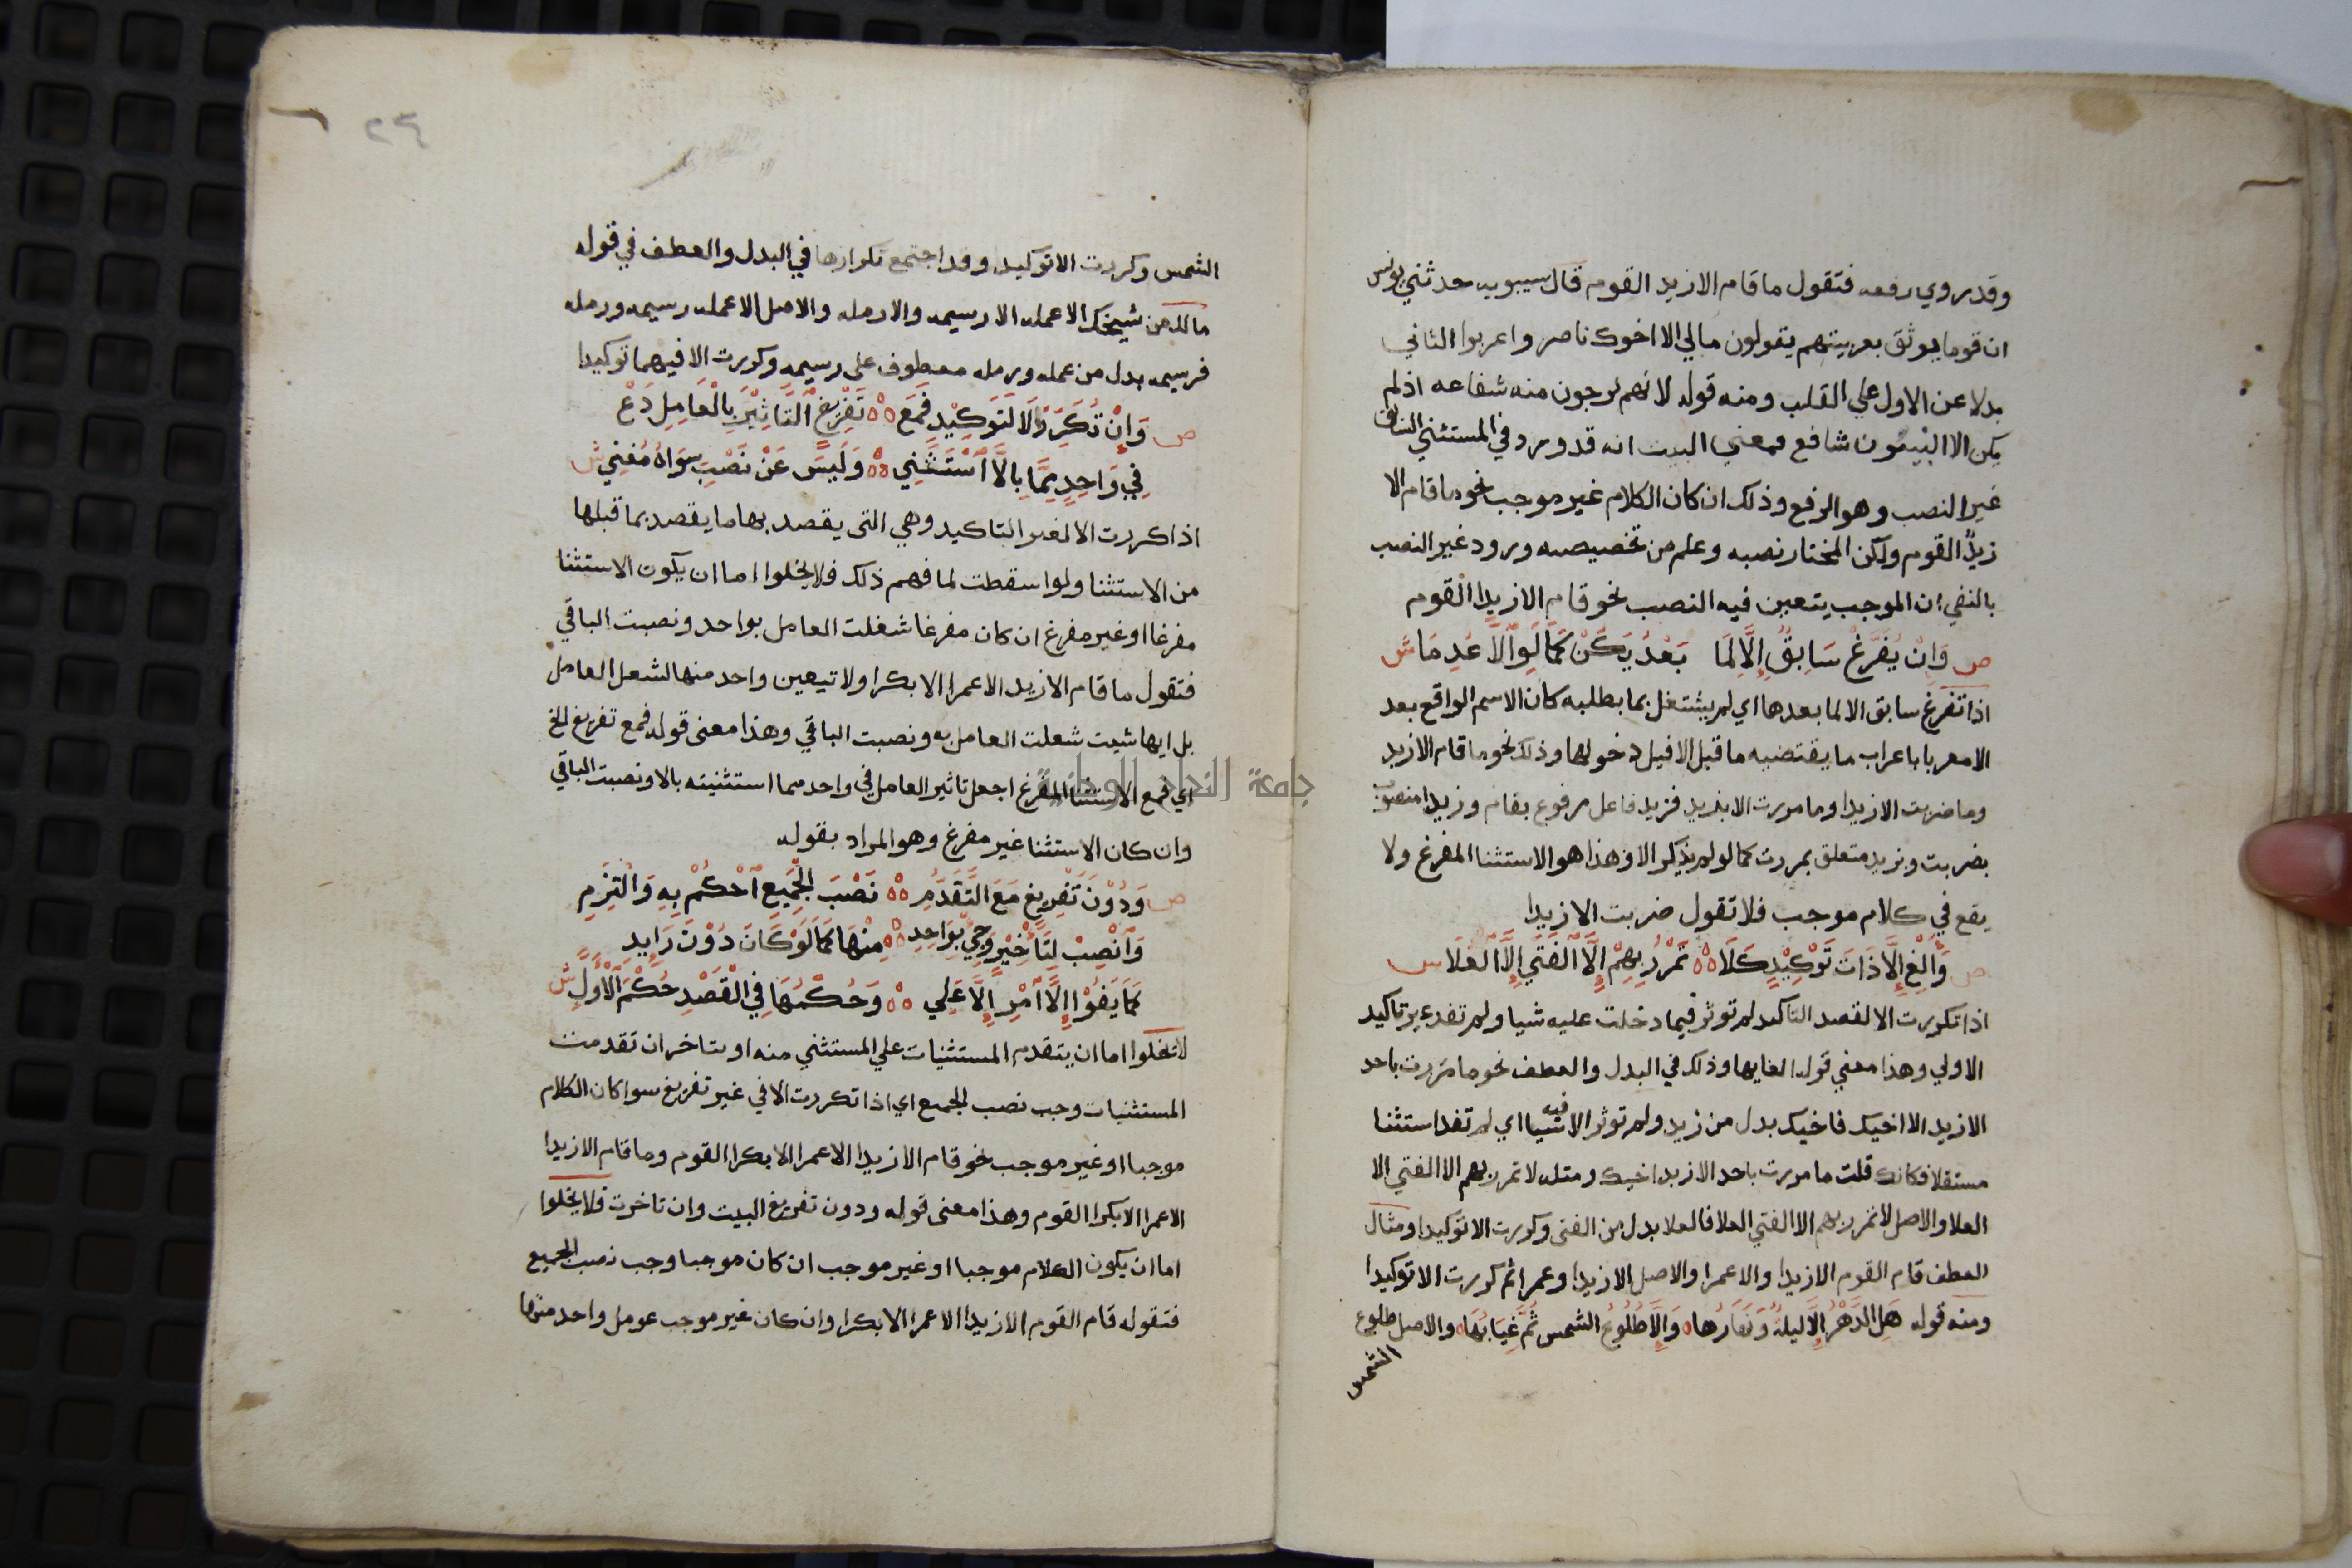 وقد روي رفعه فتقول ما قام الا زيد القوم قال سيبويه حدثني يونس
ان قوما يوثق بعربيتهم يقولون مالي الا اخوك ناصر واعربوا الثاني
بدلا عن الاول علي القلب ومنه قوله لانهم يرجون منه شفاعه اذ لم
يكن الا النبيون شافع فمعني البيت انه قد ورد في المستثني السابق
غير النصب وهو الرفع وذلك ان كان الكلام غير موجب نحو ما قام الا
زيدٌ القوم ولكن المختار نصبه وعلم من تخصيصه ورود غير النصب
بالنفي ان الموجب يتعين فيه النصب نحو قام الا زيدا القوم
ص وَاِنْ يُفَرَّغْ سَابِقٌ اِلَّا لِمَا بَعْدُ يَكُنْ كَمَا لَوِ الَّا عُدِمَا ش
اذا تفرغ سابق الا لما بعدها اي لم يشتغل بما يطلبه كان الاسم الواقع بعد
الا معربا باعراب ما يقتضيه ما قبل الا قبل دخولها وذلك نحو ما قام الا زيد
وما ضربت الا زيدا وما مررت الا بزيد فزيد فاعل مرفوع بقام وزيدا منصوب
بضربت وبزيد متعلق بمررت كما لو لم يذكر الا وهذا هو الاستثنا المفرغ ولا
يقع في كلام موجب فلا تقول ضربت الا زيدا
ص وَأَلْغِ إِلَّا ذَاتَ تَوْكِيْدٍ كَلَا ه تَمْرُرْ بِهِمْ إِلَّا الفَتَي إِلَّا الْعَلَا س
اذا تكررت الا لقصد التاكيد لم توثر فيما دخلت عليه شيا ولم تفد غير تاكيد
الاولي وهذا معني قوله الغايها وذلك في البدل والعطف نحو ما مررت باحد
الا زيد الا اخيك فاخيك بدل من زيد ولم توثر الا فيه شيا اي لم تفد استثنا
مستقلا فكانك قلت ما مررت باحد الا زيد اخيك ومثله لا تمرر بهم الا الفتي الا
العلا والاصل لا تمرر بهم الا الفتي العلا فالعلا بدل من الفتى وكررت الا توكيدا ومثال
العطف قام القوم الا زيدا والا عمرا والاصل الا زيدا وعمرا ثم كررت الا توكيدا
ومنه قوله هَلِ الدَّهْرُ إِلَّا ليلةٌ وَنَهَارُها ه وَإِلَّا طُلُوعُ الشمس ثُمَّ غِيَابُهَا ه والاصل طلوع
الشمس
٢٤
الشمس وكررت الا توكيدا وقد اجتمع تكرارها في البدل والعطف في قوله
مالك من شيخك الا عمله الا رسيمه والا رمله والاصل الا عمله رسيمه ورمله
فرسيمه بدل من عمله ورمله معطوف على رسيمه وكررت الا فيهما توكيدا
ص وَإِنْ تُكَرَّرْ لَا لَتَوكِيْدٍ فَمَعَ ه تَفْرِيْغٍ التَّاثِيْرَ بِالْعَامِلِ دَعْ
فِي وَاحِدٍ مِمَّا بِالَّا اسْتَثْنِي ه وَلَيسَ عَنْ نَصْبِ سِوَاهُ مُغْنِي ش
اذا كررت الا لغير التاكيد وهي التى يقصد بها ما يقصد بما قبلها
من الاستثنا ولو اسقطت لما فهم ذلك فلا يخلوا اما ان يكون الاستثنا
مفرغا او غير مفرغ ان كان مفرغا شغلت العامل بواحد ونصبت الباقي
فتقول ما قام الا زيد الا عمرا الا بكرا ولا تيعين واحد منها لشعل العامل
بل ايها شيت شعلت العامل به ونصبت الباقي وهذا معنى قوله فمع تفريغ الخ
اي فمع الاستثنا المفرغ اجعل تاثير العامل في واحد مما استثنيته بالا ونصبت الباقي
وان كان الاستثنا غير مفرغ وهو المراد بقوله
ص وَدُوْنَ تَفْرِيغٍ مَعَ التَّقَدُّمِ ه نَصْبَ الجَمِيعِ احْكُمْ بِهِ وَالْتَزِمِ
وَانْصِبْ لِتَأْخِيْرٍ وَجِيْ بِوَاحِدِ ه مِنْهَا كَمَا لَوْ كَانَ دُوْنَ زَايِدِ
كَمَا يَفُوْا إِلَّا اَمْرٍ إِلَّا عَلِي ه وَحُكْمُهَا فِي الْقَصْدِ حُكْمُ الْأَوَّلِ ش
لا تخلوا اما ان يتقدم المستثنيات علي المستثني منه او يتاخر ان تقدمت
المستثنيات وجب نصب الجميع اي اذا تكررت الا في غير تفريغ سوا كان الكلام
موجبا او غير موجب نحو قام الا زيدا الا عمرا الا بكرا القوم وما قام الا زيدا
الا عمرا الا بكرا القوم وهذا معنى قوله ودون تفريغ البيت وان تاخرت فلا يخلوا
اما ان يكون الكلام موجبا او غير موجب ان كان موجبا وجب نصب الجميع
فتقول قام القوم الا زيدا الا عمرا الا بكرا وان كان غير موجب عومل واحد منها